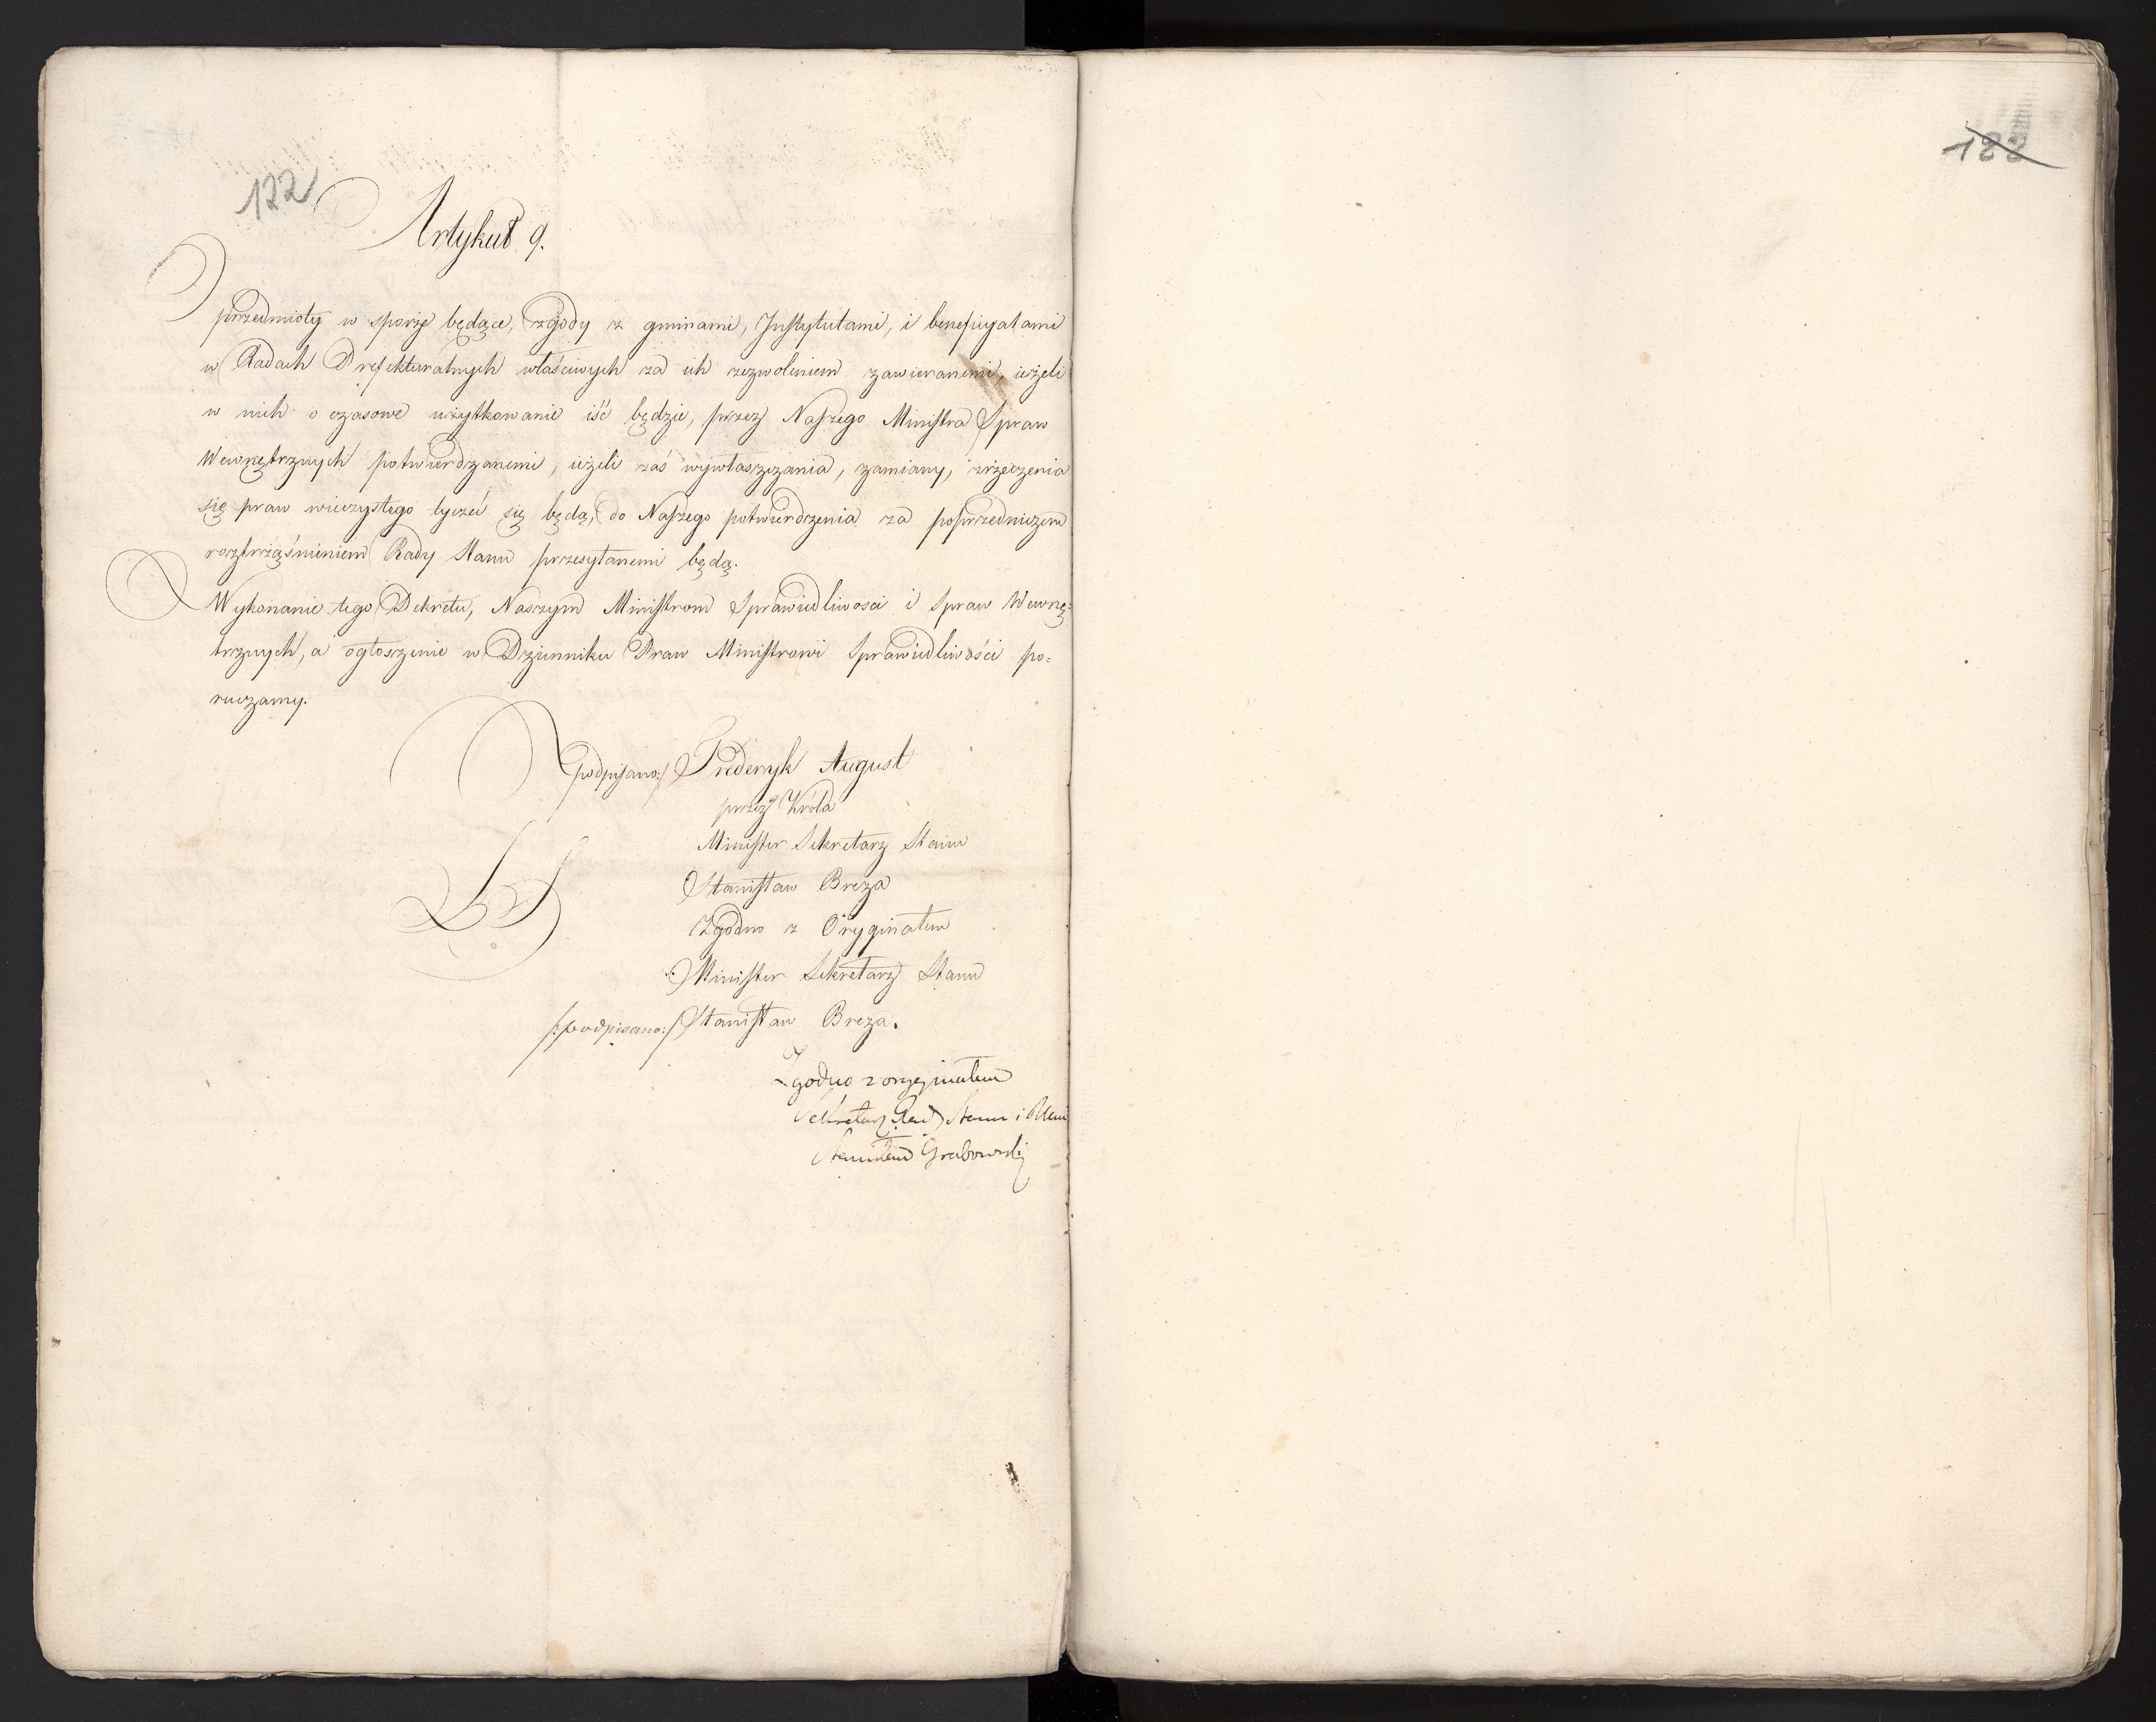 122
Artykuł 9.
O przedmioty w sporze będące, zgody z gminami, Instytutami, i beneficyatami
w Radach Prefekturalnych właściwych za ich zezwoleniem zawieranemi, ieżeli
w nich o czasowe użytkowanie iść będzie, przez Naszego Ministra Spraw
Wewnętrznych potwierdzanemi, ieżeli zaś wywłaszczania, zamiany, zrzeczenia
się praw wieczystego tyczeć się będą, do Naszego potwierdzenia za poprzedniczem
roztrząśnieniem Rady Stanu przesyłanemi będą.
Wykonanie tego Dekretu, Naszym Ministrom Sprawiedliwosci i Spraw Wewnę=
trznych, a ogłoszenie w Dzienniku Praw Ministrowi Sprawiedliwości po=
ruczamy.
/podpisano:/ Frederyk August
przez Króla
Minister Sekretarz Stanu
LS
Stanisław Breza
Zgodno z Oryginałem
Minister Sekretarz Stanu
/:podpisano:/ Stanisław Breza.
Zgodno z oryginałem
Sekretarz Rady Stanu i Mini
Stanisław Grabowski